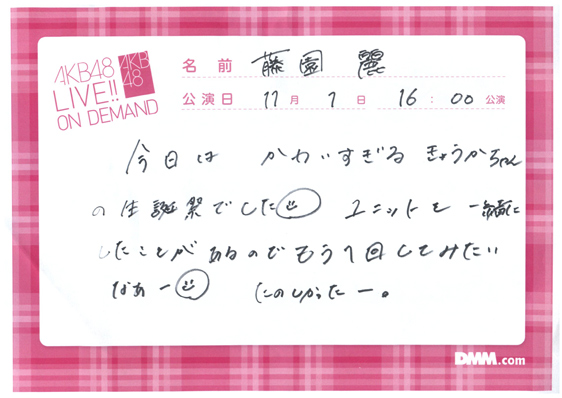 AKB48
LIVE!!
ON DEMAND
AKB
48
名前 藤園 麗
公演日 11月1日 16:00公演
今日は かわいすぎる きょうかちゃん
の生誕祭でした ユニットを 一緒に
したことがあるのでもう1回してみたい
なあー たのしかったー。
DMM.com